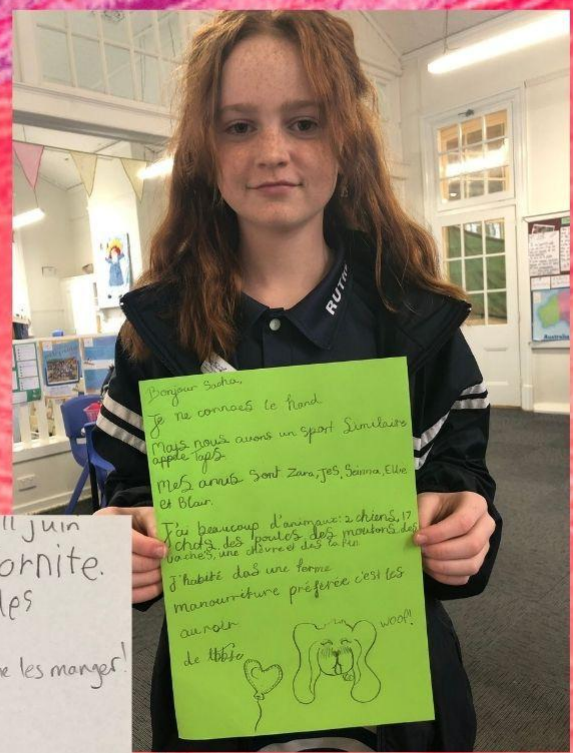 Bonjour Sacha,
Je ne connaes le hand
Mais nous avons un sport Similaire
appele Taps
mes amis sont Zara, Jes, Sienna, Ellie
et Blair.
J'ai beaucoup d'animaux: 2 chiens, 17
chats, des poules des moutons des
vaches, une chèvre et des lapin
J'habité das une ferme
manourriture préférée c'est les
de
woof!
11 Juin
ornite.
les
e les manger!
RUTH
Austral